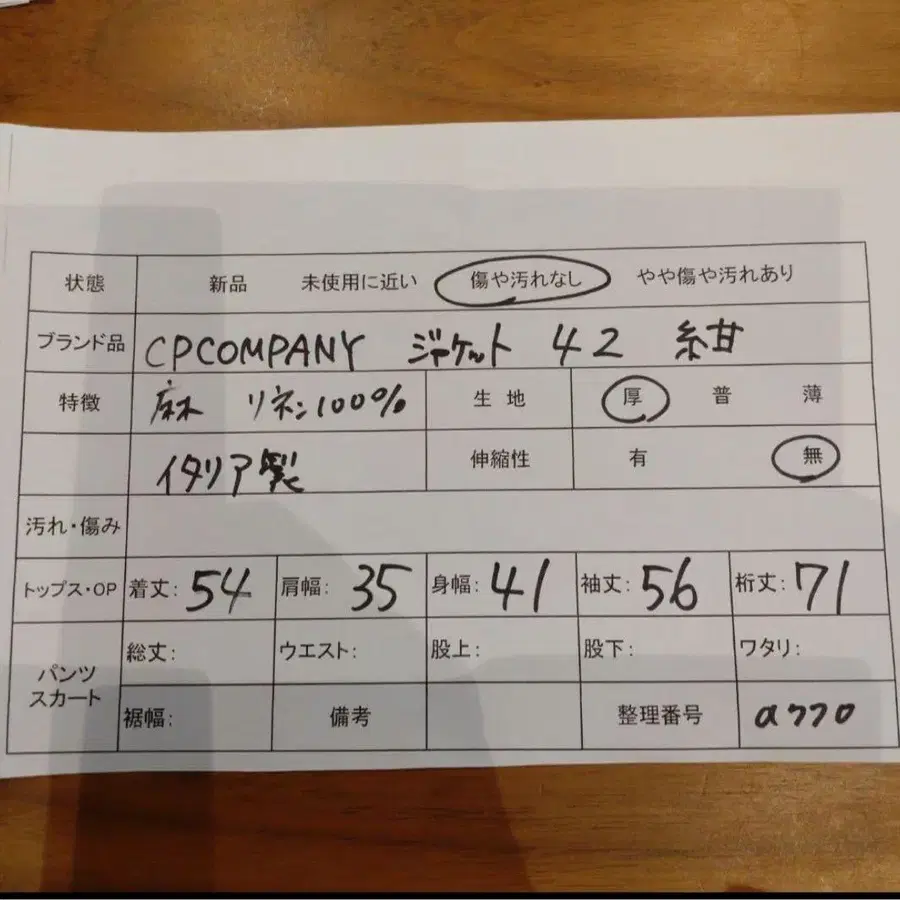 状態 新品 未使用に近い 傷や汚れなし やや傷や汚れあり
ブランド品 CPCOMPANY ジャケット 42 紺
特徴 麻 リネン100% 生地 厚 普 薄
イタリア製 伸縮性 有 無
汚れ・傷み
トップス・OP 着丈: 54 肩幅: 35 身幅: 41 袖丈: 56 裄丈: 71
パンツ スカート 総丈: ウエスト: 股上: 股下: ワタリ:
裾幅: 備考 整理番号 a770